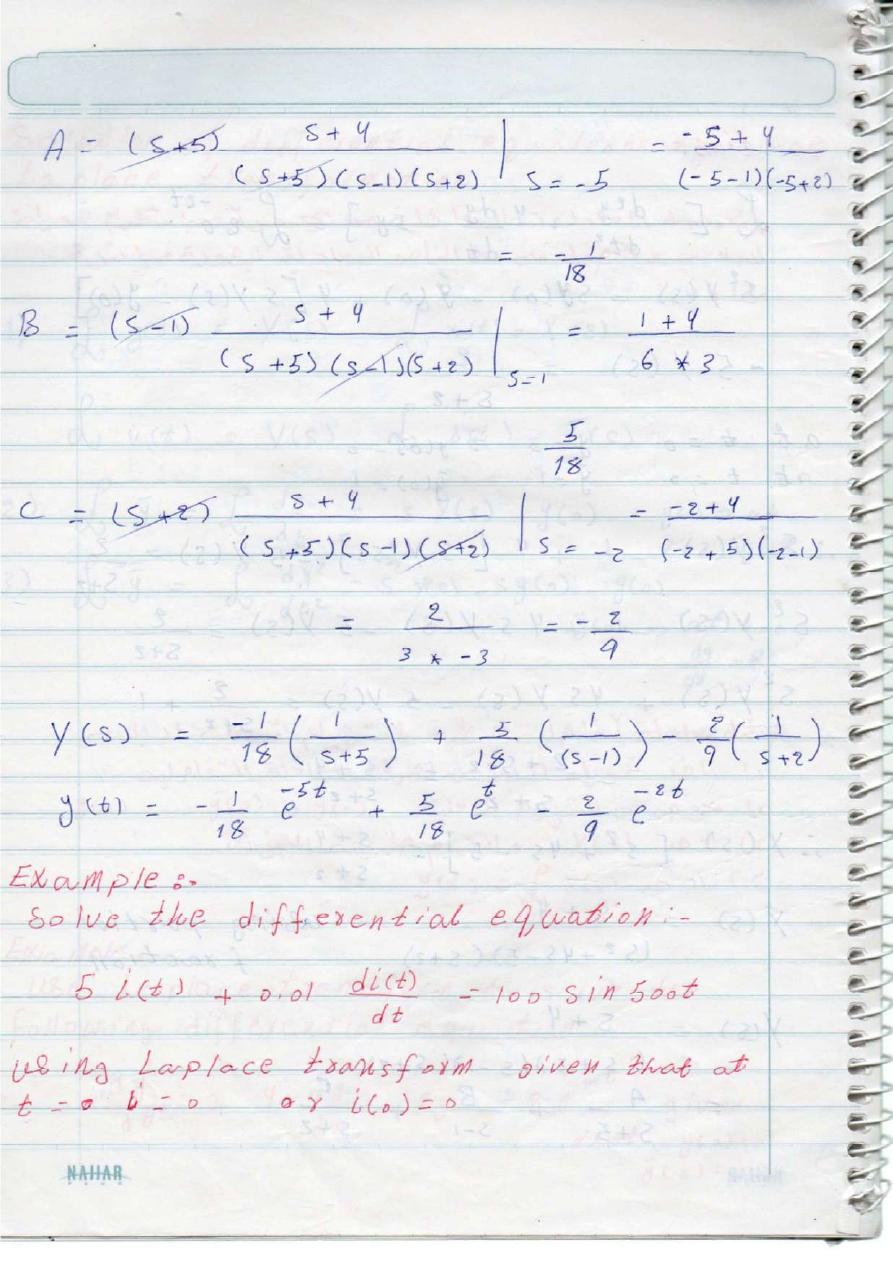 A = (s+5) s+4 / (s+5)(s-1)(s+2) | s = -5 = -5+4 / (-5-1)(-5+2)
= -1/18
B = (s-1) s+4 / (s+5)(s-1)(s+2) | s=1 = 1+4 / 6 * 3
5/18
C = (s+2) s+4 / (s+5)(s-1)(s+2) | s = -2 = -2+4 / (-2+5)(-2-1)
= 2 / 3 * -3 = -2/9
Y(s) = -1/18 (1/s+5) + 5/18 (1/(s-1)) - 2/9 (1/s+2)
y(t) = -1/18 e^-5t + 5/18 e^t - 2/9 e^-2t
Example:-
Solve the differential equation:-
5 i(t) + 0.01 di(t)/dt = 100 sin 500t
using Laplace transform given that at
t = 0 i = 0 or i(0) = 0
NAJJAR